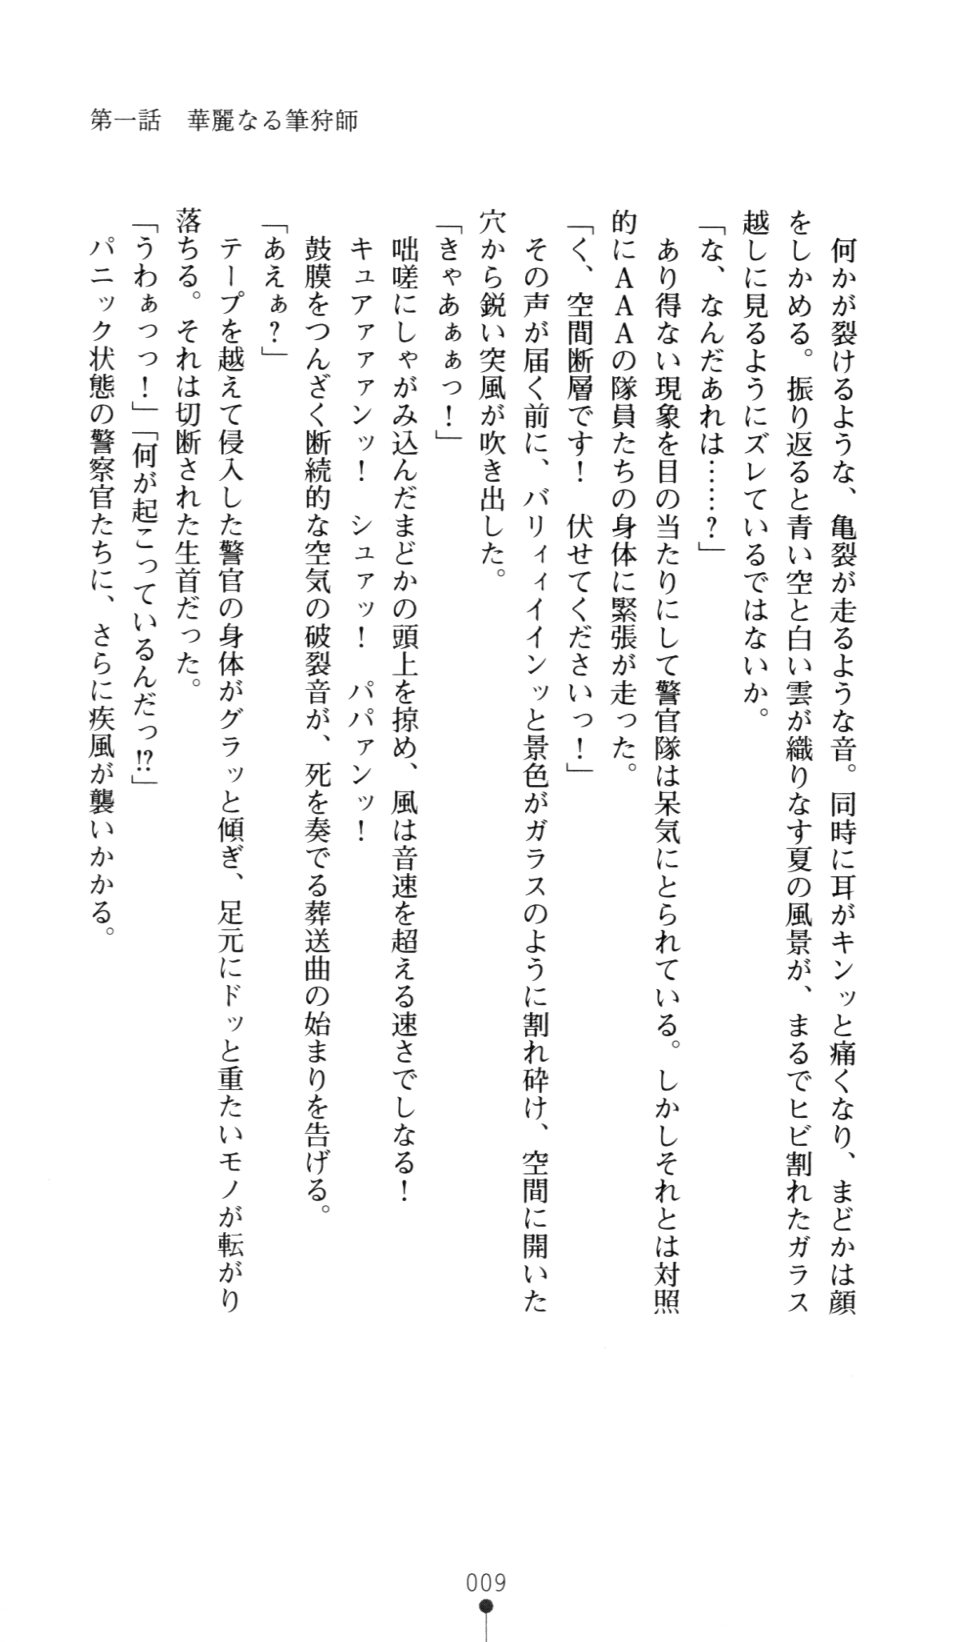 第一話　華麗なる筆狩師
　何かが裂けるような、亀裂が走るような音。同時に耳がキンッと痛くなり、まどかは顔
をしかめる。振り返ると青い空と白い雲が織りなす夏の風景が、まるでヒビ割れたガラス
越しに見るようにズレているではないか。
「な、なんだあれは……？」
　あり得ない現象を目の当たりにして警官隊は呆気にとられている。しかしそれとは対照
的にＡＡＡの隊員たちの身体に緊張が走った。
「く、空間断層です！　伏せてくださいっ！」
　その声が届く前に、バリィィイインッと景色がガラスのように割れ砕け、空間に開いた
穴から鋭い突風が吹き出した。
「きゃあぁぁっ！」
　咄嗟にしゃがみ込んだまどかの頭上を掠め、風は音速を超える速さでしなる！
　キュアァァァンッ！　シュァッ！　パパァンッ！
　鼓膜をつんざく断続的な空気の破裂音が、死を奏でる葬送曲の始まりを告げる。
「あえぁ？」
　テープを越えて侵入した警官の身体がグラッと傾ぎ、足元にドッと重たいモノが転がり
落ちる。それは切断された生首だった。
「うわぁっっ！」「何が起こっているんだっ⁉」
　パニック状態の警察官たちに、さらに疾風が襲いかかる。
009